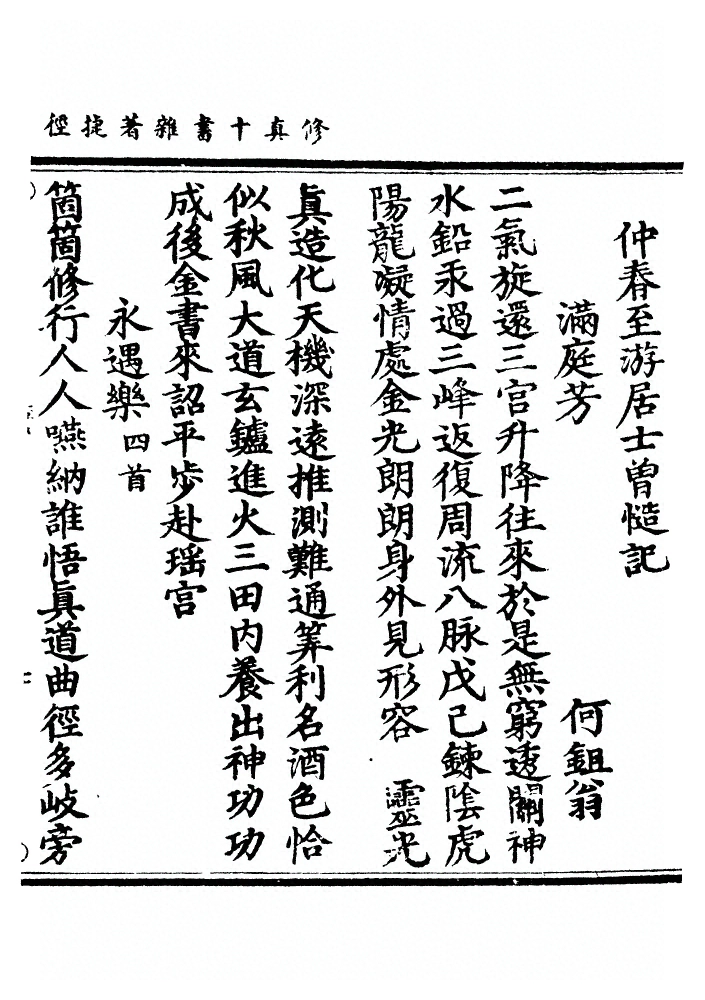 修真十書雜著捷徑
仲春至游居士曾慥記
滿庭芳　何鉏翁
二氣旋還三宮升降往來於是無窮透關神
水鉛汞過三峰返復周流八脉戊己鍊陰虎
陽龍凝情處金光朗朗身外見形容　靈光
眞造化天機深遠推測難通筭利名酒色恰
似秋風大道玄鑪進火三田內養出神功功
成後金書來詔平步赴瑶宮
永遇樂四首
箇箇修行人人嚥納誰悟眞道曲徑多岐旁